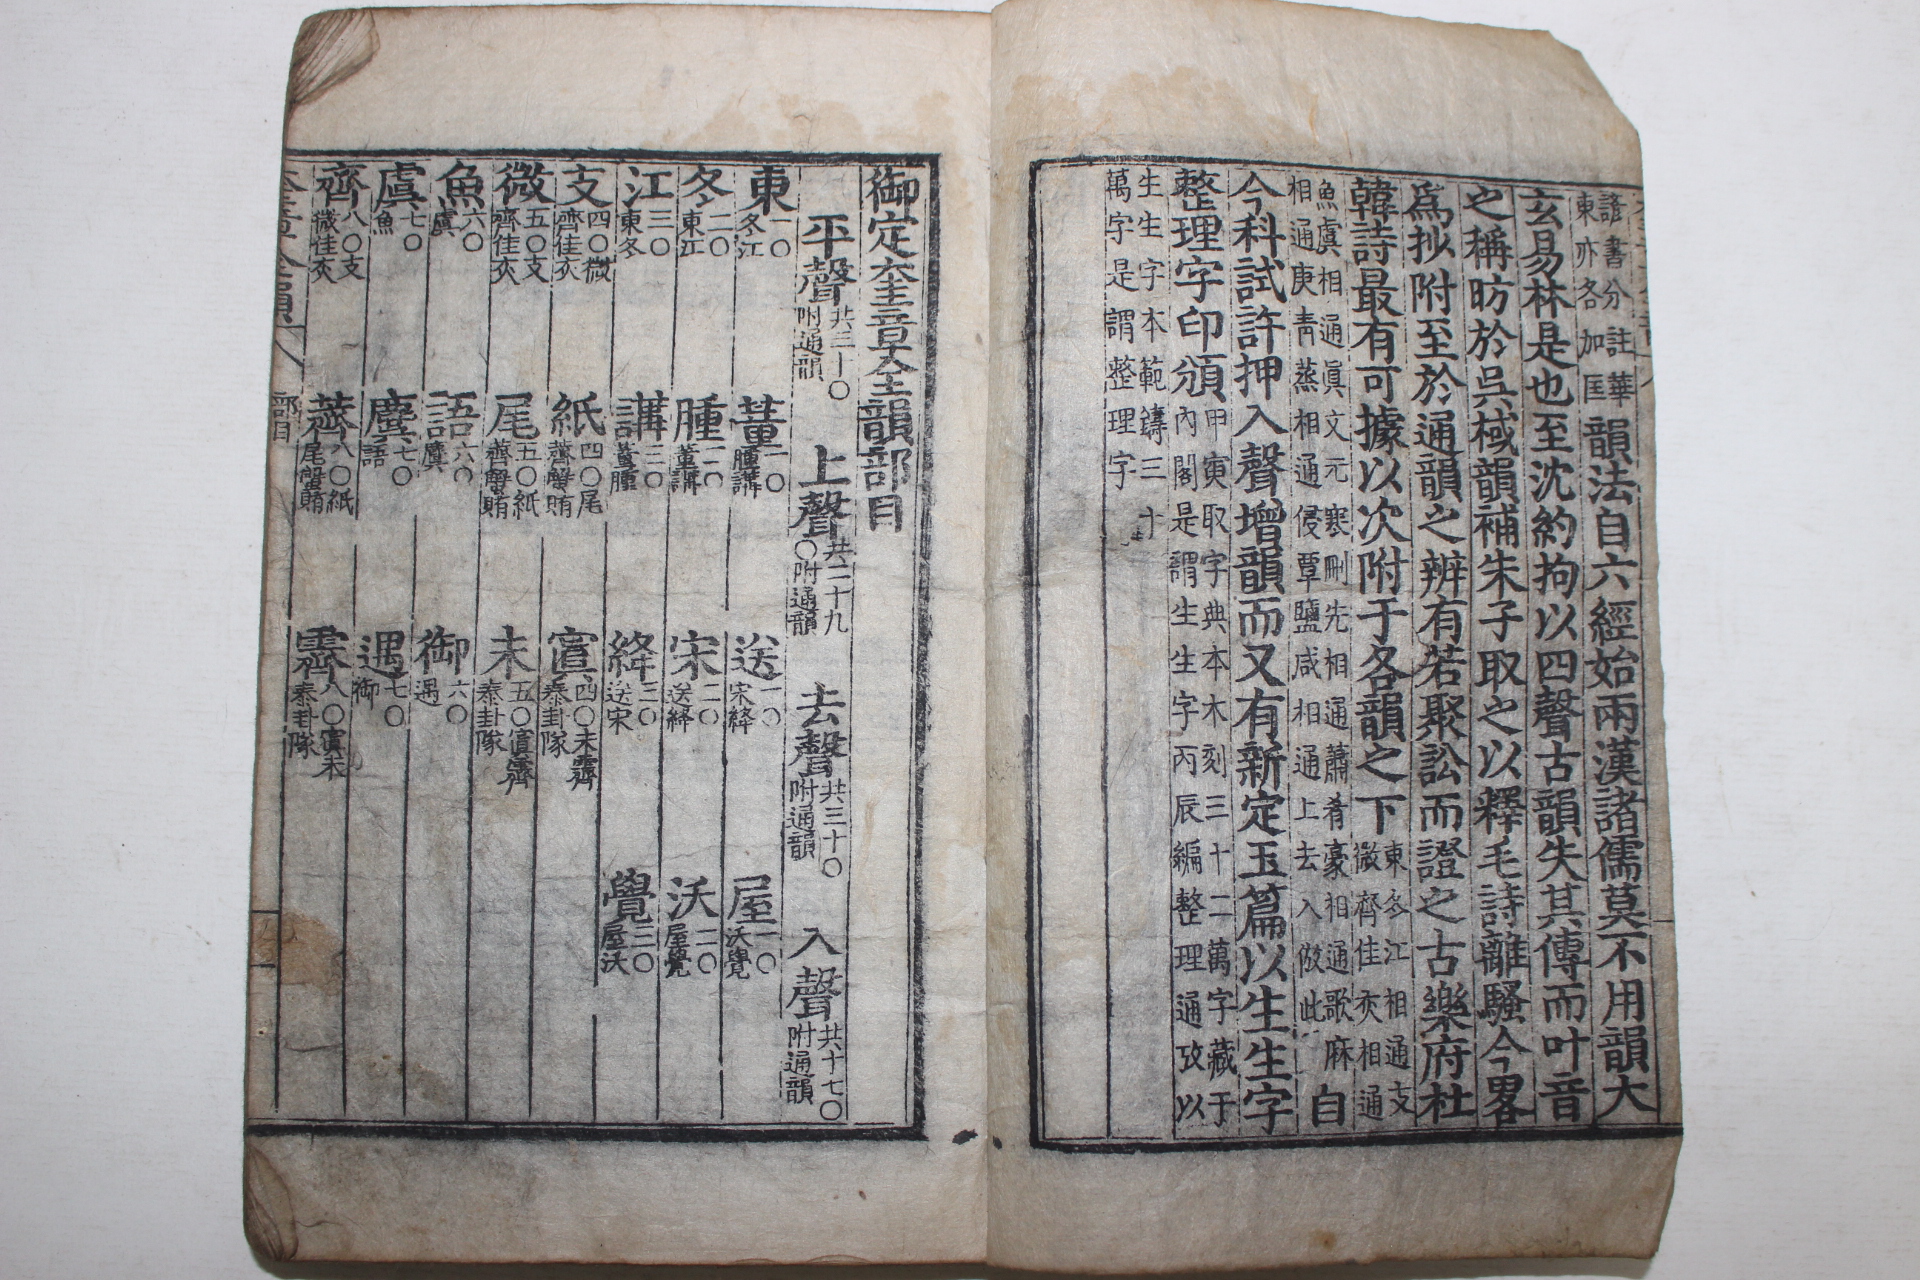 諺書分註華
東亦各加匡
韻法自六經始兩漢諸儒莫不用韻大
玄易林是也至沈約拘以四聲古韻失其傳而叶音
之稱昉於吳棫韻補朱子取之以釋毛詩離騷今畧
爲抄附至於通韻之辨有若聚訟而證之古樂府杜
韓詩最有可據以次附于各韻之下
東冬江相通支
微齊佳灰相通
魚虞相通眞文元寒刪先相通蕭肴豪相通歌麻
相通庚靑蒸相通侵覃鹽咸相通上去入倣此
自
今科試許押入聲增韻而又有新定玉篇以生生字
整理字印頒
甲寅取字典本木刻三十二萬字藏于
內閣是謂生生字丙辰編整理通攷以
生生字本範鑄三十
萬字是謂整理字
御定奎章全韻部目
平聲 共三十〇 附通韻
上聲 共二十九 〇附通韻
去聲 共三十〇 附通韻
入聲 共十七〇 附通韻
東 一〇 冬江
董 一〇 腫講
送 一〇 宋絳
屋 一〇 沃覺
冬 二〇 東江
腫 二〇 董講
宋 二〇 送絳
沃 二〇 屋覺
江 三〇 東冬
講 三〇 董腫
絳 三〇 送宋
覺 三〇 屋沃
支 四〇微 齊佳灰
紙 四〇尾 薺蟹賄
寘 四〇未霽 泰卦隊
微 五〇支 齊佳灰
尾 五〇紙 薺蟹賄
未 五〇寘霽 泰卦隊
魚 六〇 虞
語 六〇 麌
御 六〇 遇
虞 七〇 魚
麌 七〇 語
遇 七〇 御
齊 八〇支 微佳灰
薺 八〇紙 尾蟹賄
霽 八〇寘未 泰卦隊
奎章全韻 部目